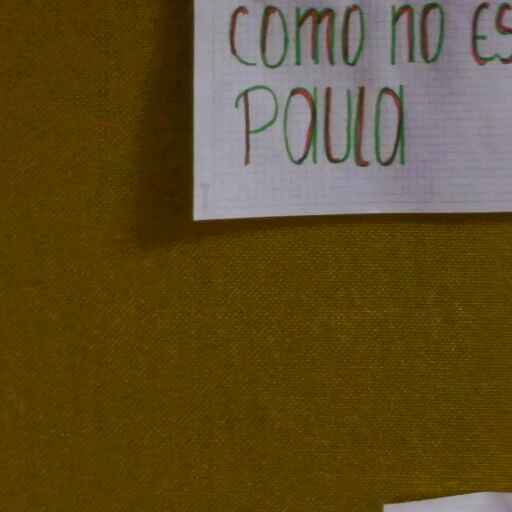 como no es
Paula